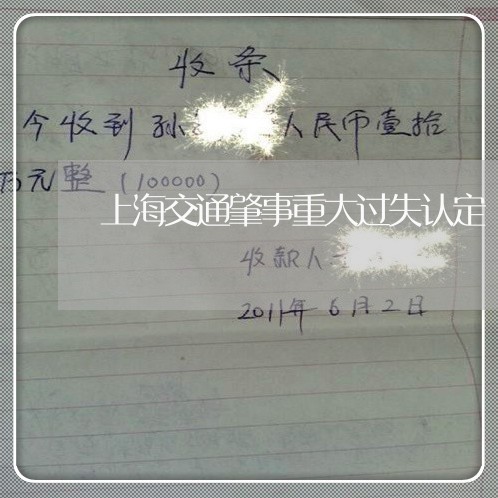 收条
今收到孙 人民币壹拾
万元整（100000）
上海交通肇事重大过失认定
收款人
2011年6月2日